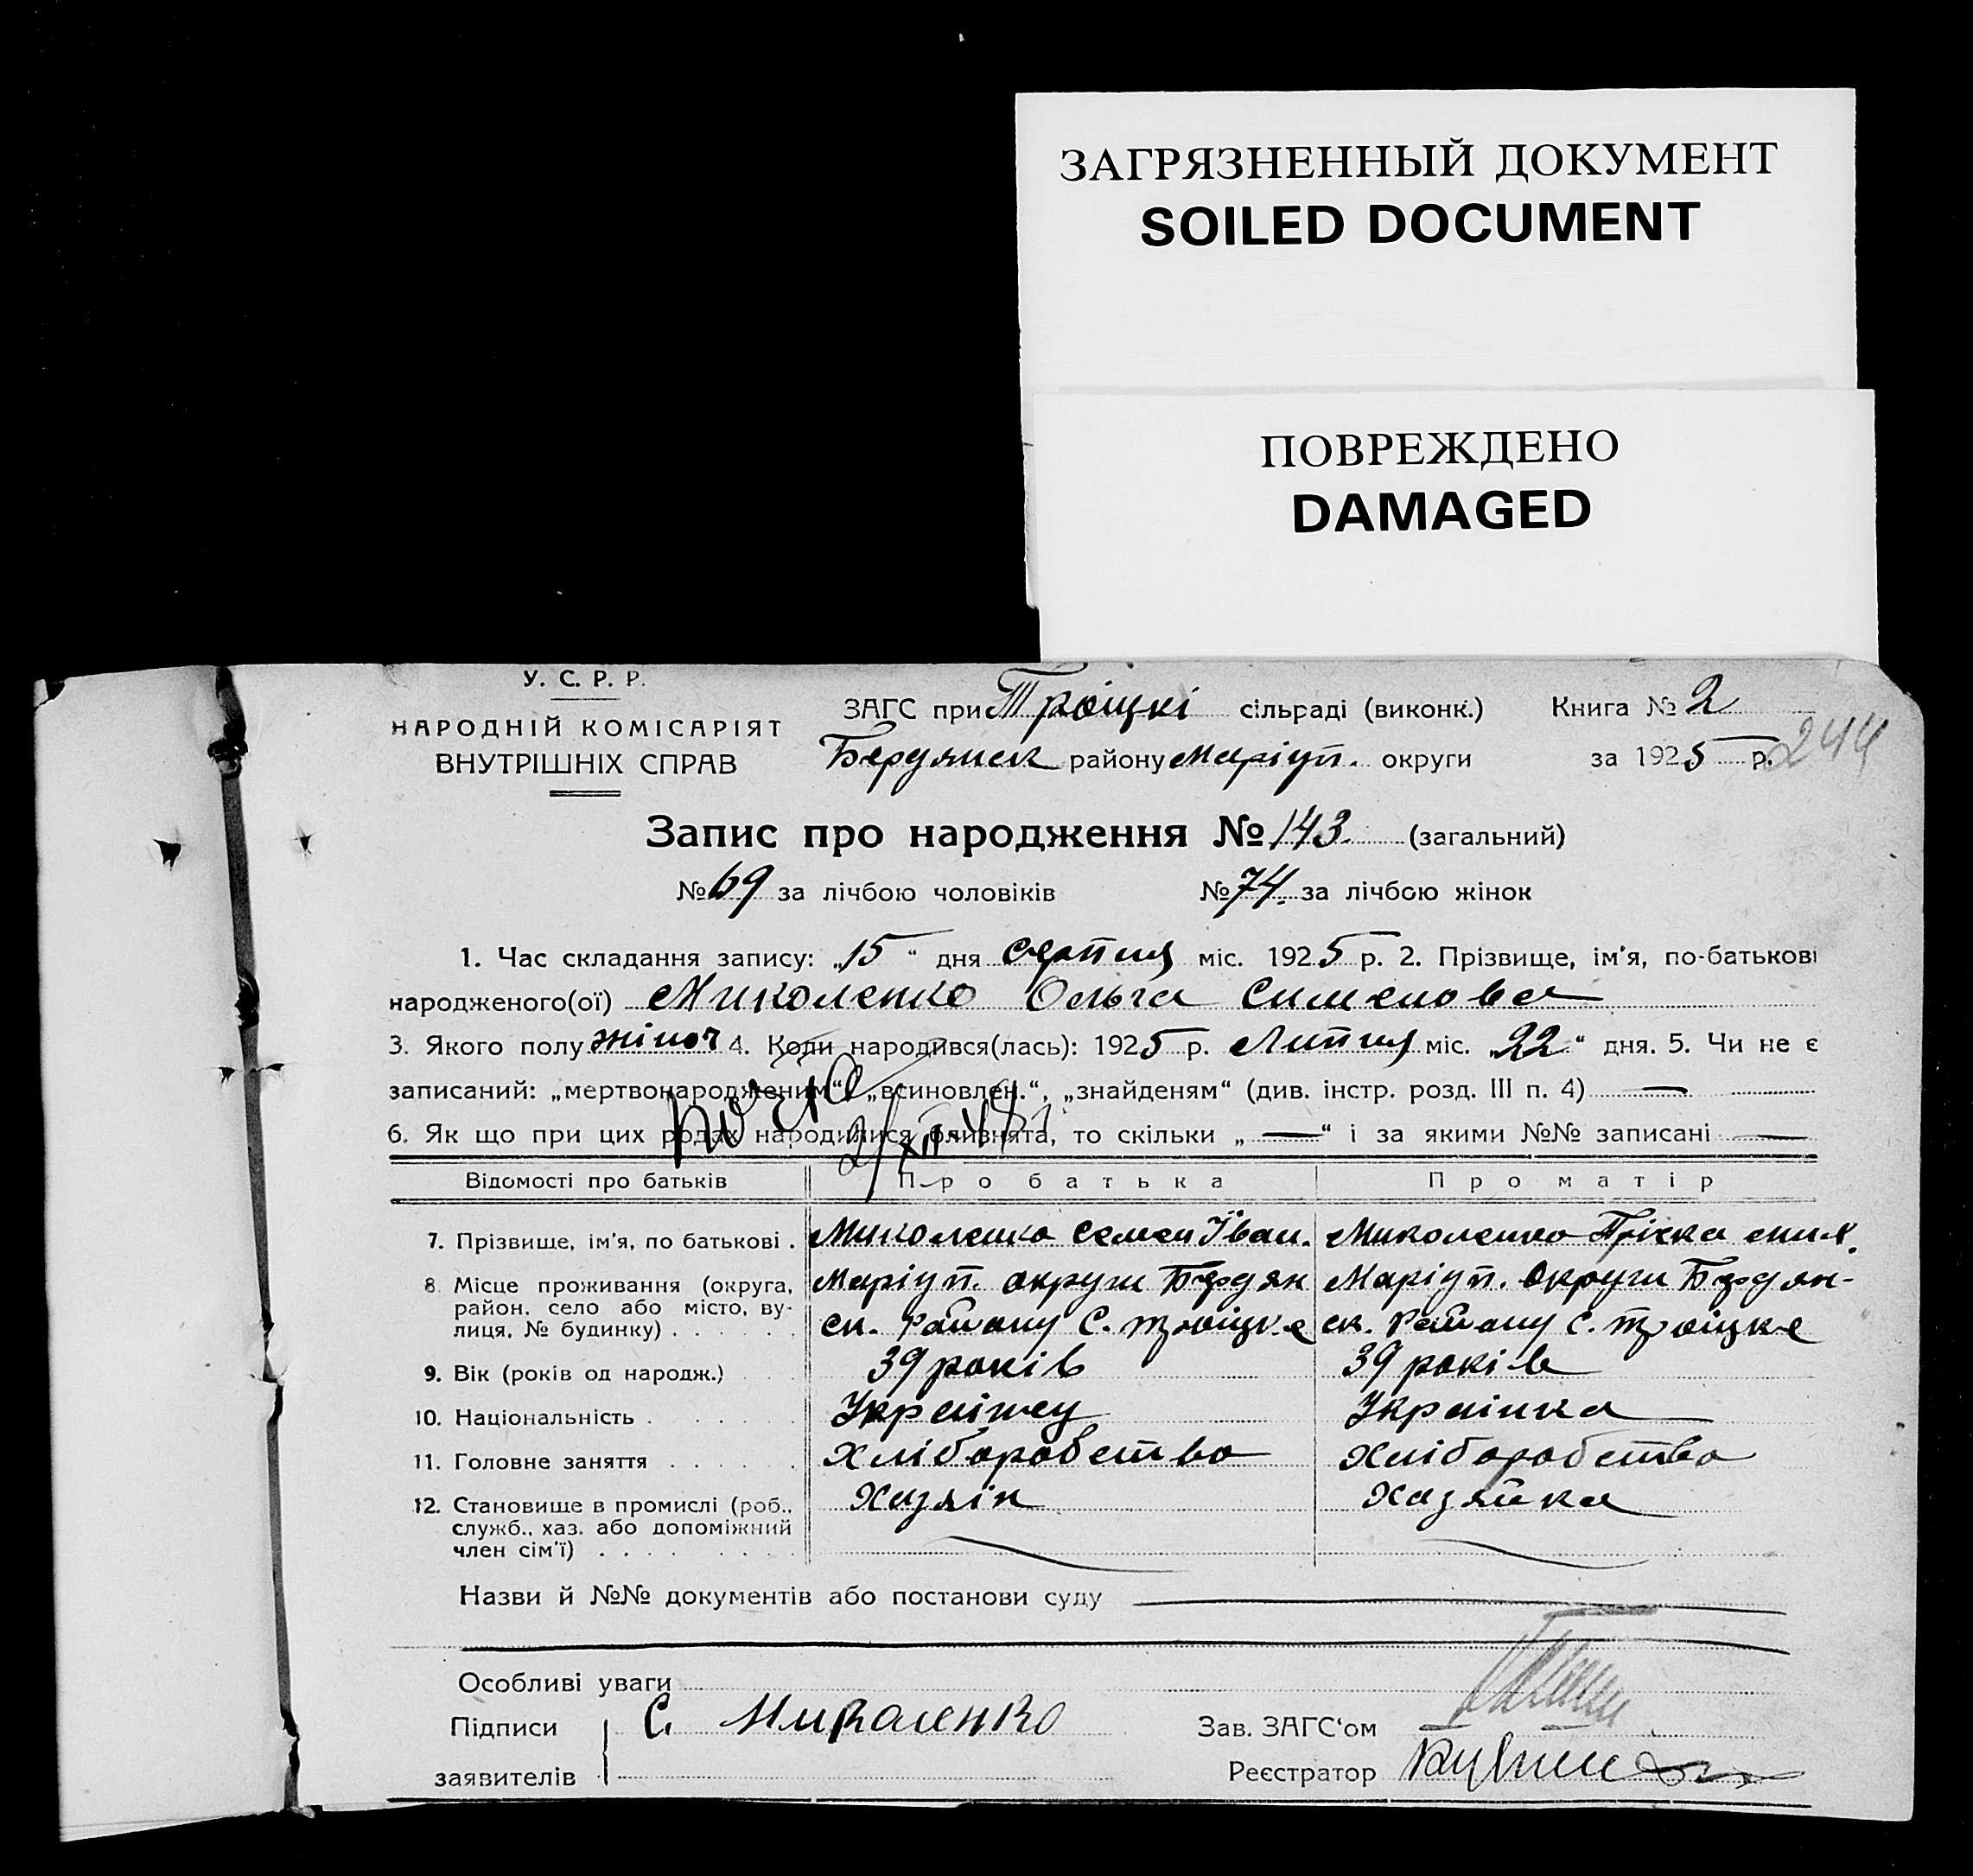 ЗАГРЯЗНЕННЫЙ ДОКУМЕНТ
SOILED DOCUMENT
ПОВРЕЖДЕНО
DAMAGED
У. С. Р. Р.
НАРОДНІЙ КОМІСАРІЯТ
ВНУТРІШНІХ СПРАВ
ЗАГС при Троіцкі сільраді (виконк.) Книга № 2
Бердянск району Маріуп. округи за 1925 р. 244
Запис про народження № 143. (загальний)
№ 69 за лічбою чоловіків № 74. за лічбою жінок
1. Час складання запису: „15“ дня серпня міс. 1925 р. 2. Прізвище, ім'я, по-батькові
народженого(ої) Миколенко Ольга Сименова
3. Якого полу жіноч 4. Коли народився(лась): 1925 р. Липня міс. „22“ дня. 5. Чи не є
записаний: „мертвонародженим“, „всиновлен.“, „знайденям“ (див. інстр. розд. III п. 4) —
6. Як що при цих родах народилися близнята, то скільки „—“ і за якими №№ записані —
Відомості про батьків Про батька Про матір
7. Прізвище, ім'я, по батькові . Миколенко Семен Іван. Миколенко Пріска
8. Місце проживання (округа, Маріуп. округи Бердян Маріуп. округи Бердян-
район, село або місто, ву-
лиця, № будинку) . . . . . . ск. Району С. Троіцке ск. Району С. Троіцке
9. Вік (років од народж.) 39 років 39 років
10. Національність . . . . . Украінец Украінка
11. Головне заняття . . . . . . Хліборобство Хліборобство
12. Становище в промислі (роб., Хазяін Хазяйка
служб., хаз. або допоміжний
член сім'ї) . . . . . . . .
Назви й №№ документів або постанови суду
Особливі уваги
Підписи С. Миколенко Зав. ЗАГС'ом
заявителів Реєстратор